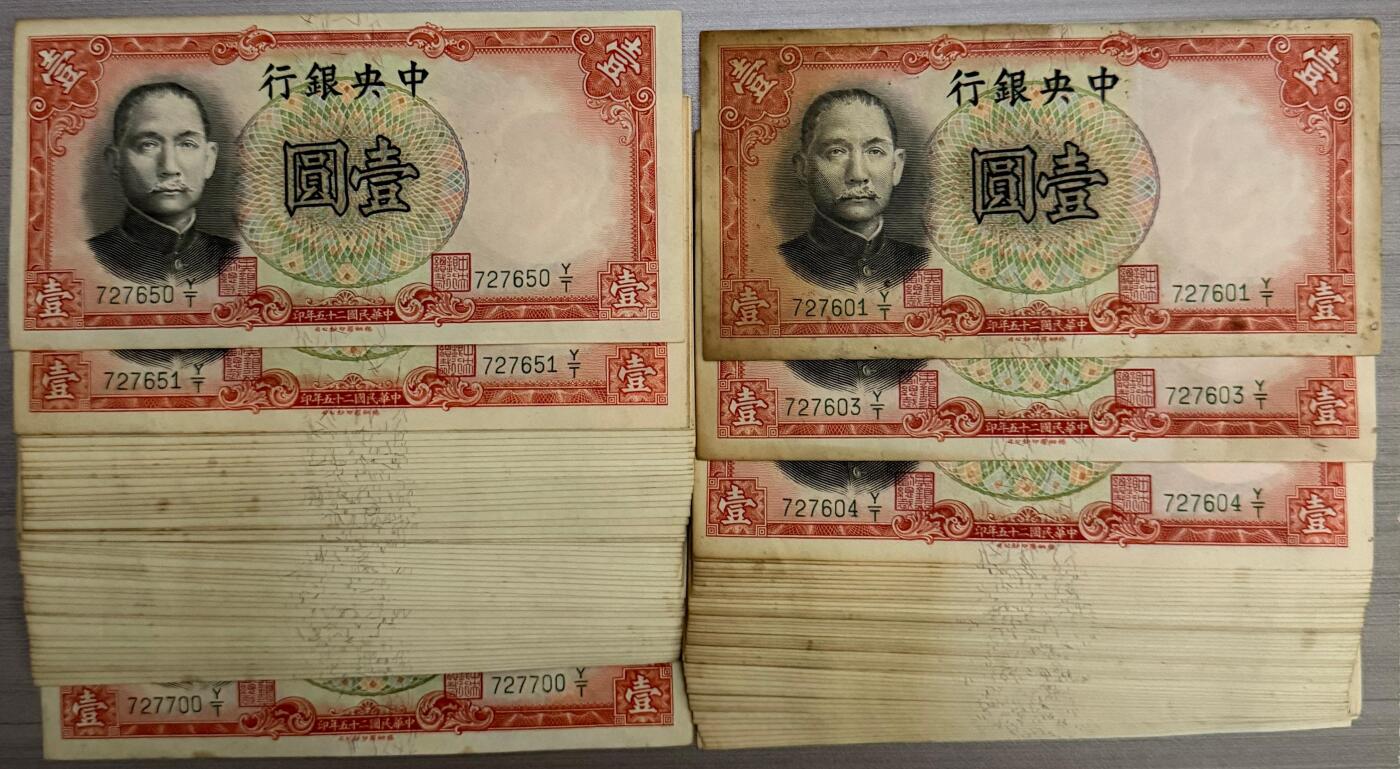 壹 壹
中央銀行
壹圓
727650 Y/T 727650 Y/T
壹 壹
中華民國二十五年印
727651 Y/T 727651 Y/T
壹 壹
中華民國二十五年印
727700 Y/T 727700 Y/T
壹 壹
中華民國二十五年印
壹 壹
中央銀行
壹圓
727601 Y/T 727601 Y/T
壹 壹
中華民國二十五年印
727603 Y/T 727603 Y/T
壹 壹
中華民國二十五年印
727604 Y/T 727604 Y/T
壹 壹
中華民國二十五年印